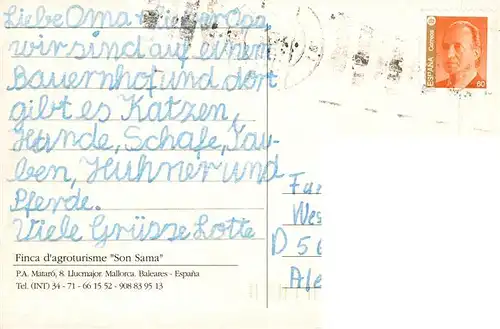 Liebe Oma + lieber Opa,
wir sind auf einem
Bauernhof und dort
gibt es Katzen,
Hunde, Schafe, Tau-
ben, Hühner und
Pferde.
Viele Grüsse Lotte
Finca d'agroturisme "Son Sama"
P.A. Mataró, 8. Llucmajor. Mallorca. Baleares - España
Tel. (INT) 34 - 71 - 66 15 52 - 908 83 95 13
ESPAÑA
Correos
60
Wes
D 56